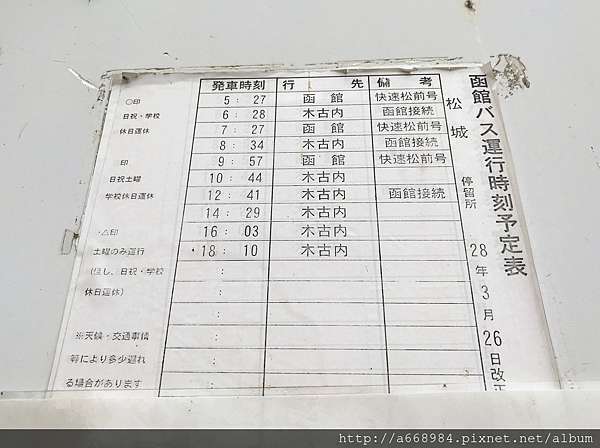 函館バス運行時刻予定表
松城 停留所
28年3月26日改正
発車時刻 行先 備考
5:27 函館 快速松前号
6:28 木古内 函館接続
7:27 函館 快速松前号
8:34 木古内 函館接続
9:57 函館 快速松前号
10:44 木古内
12:41 木古内 函館接続
14:29 木古内
16:03 木古内
・18:10 木古内
○印
日祝・学校
休日運休
印
日祝土曜
学校休日運休
・△印
土曜のみ運行
(但し、日祝・学校
休日運休)
※天候・交通事情
等により多少遅れ
る場合があります
http://a668984.pixnet.net/album